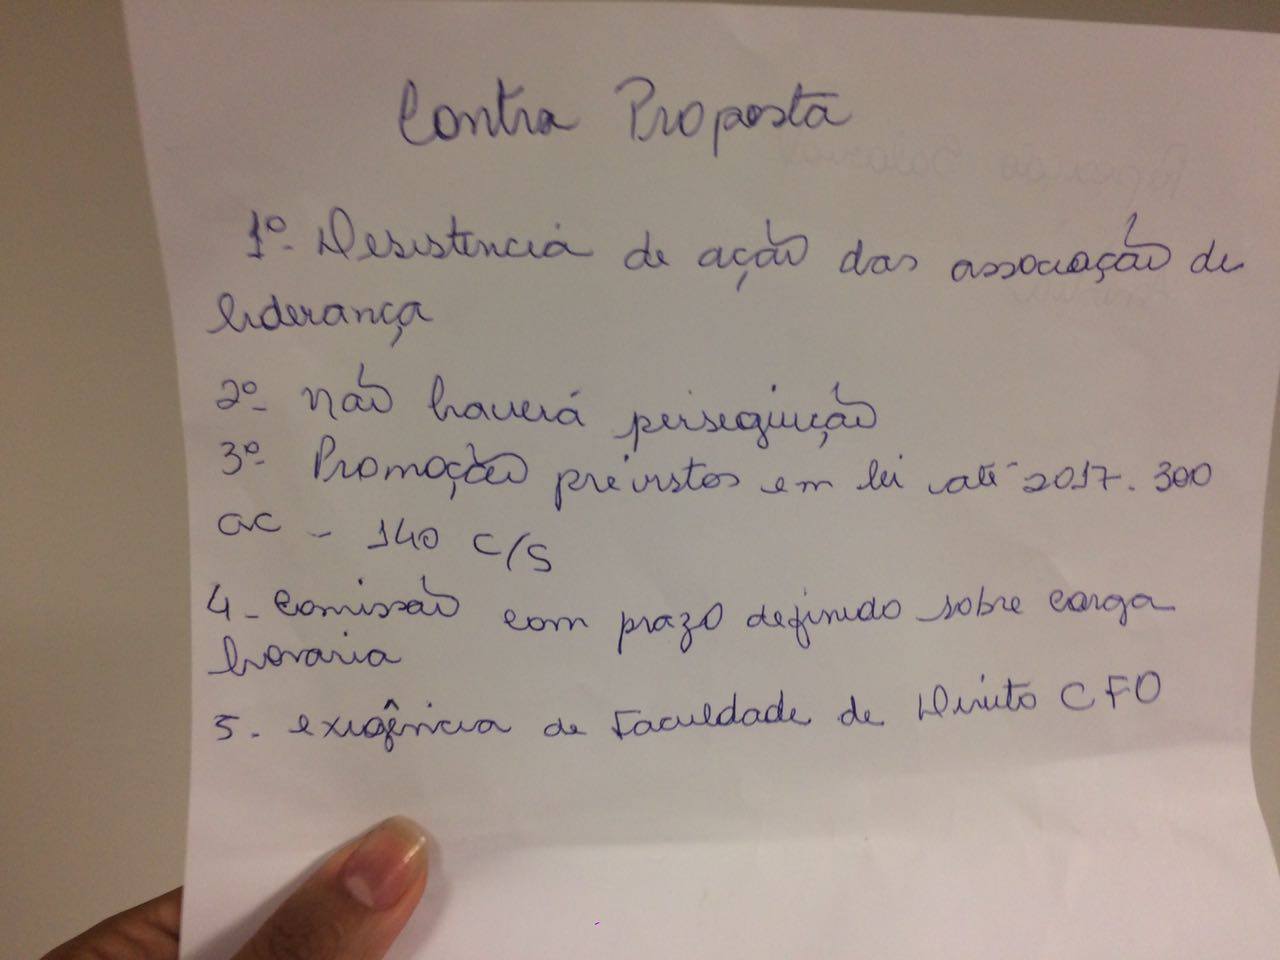 Contra Proposta
1º- Desistencia de ação das associação de
liderança
2º- não haverá perseguição
3º- Promoção previstos em lei até 2017. 300
ac - 140 C/S
4- Comissão com prazo definido sobre carga
horaria
5- exigência de Faculdade de Direito CFO